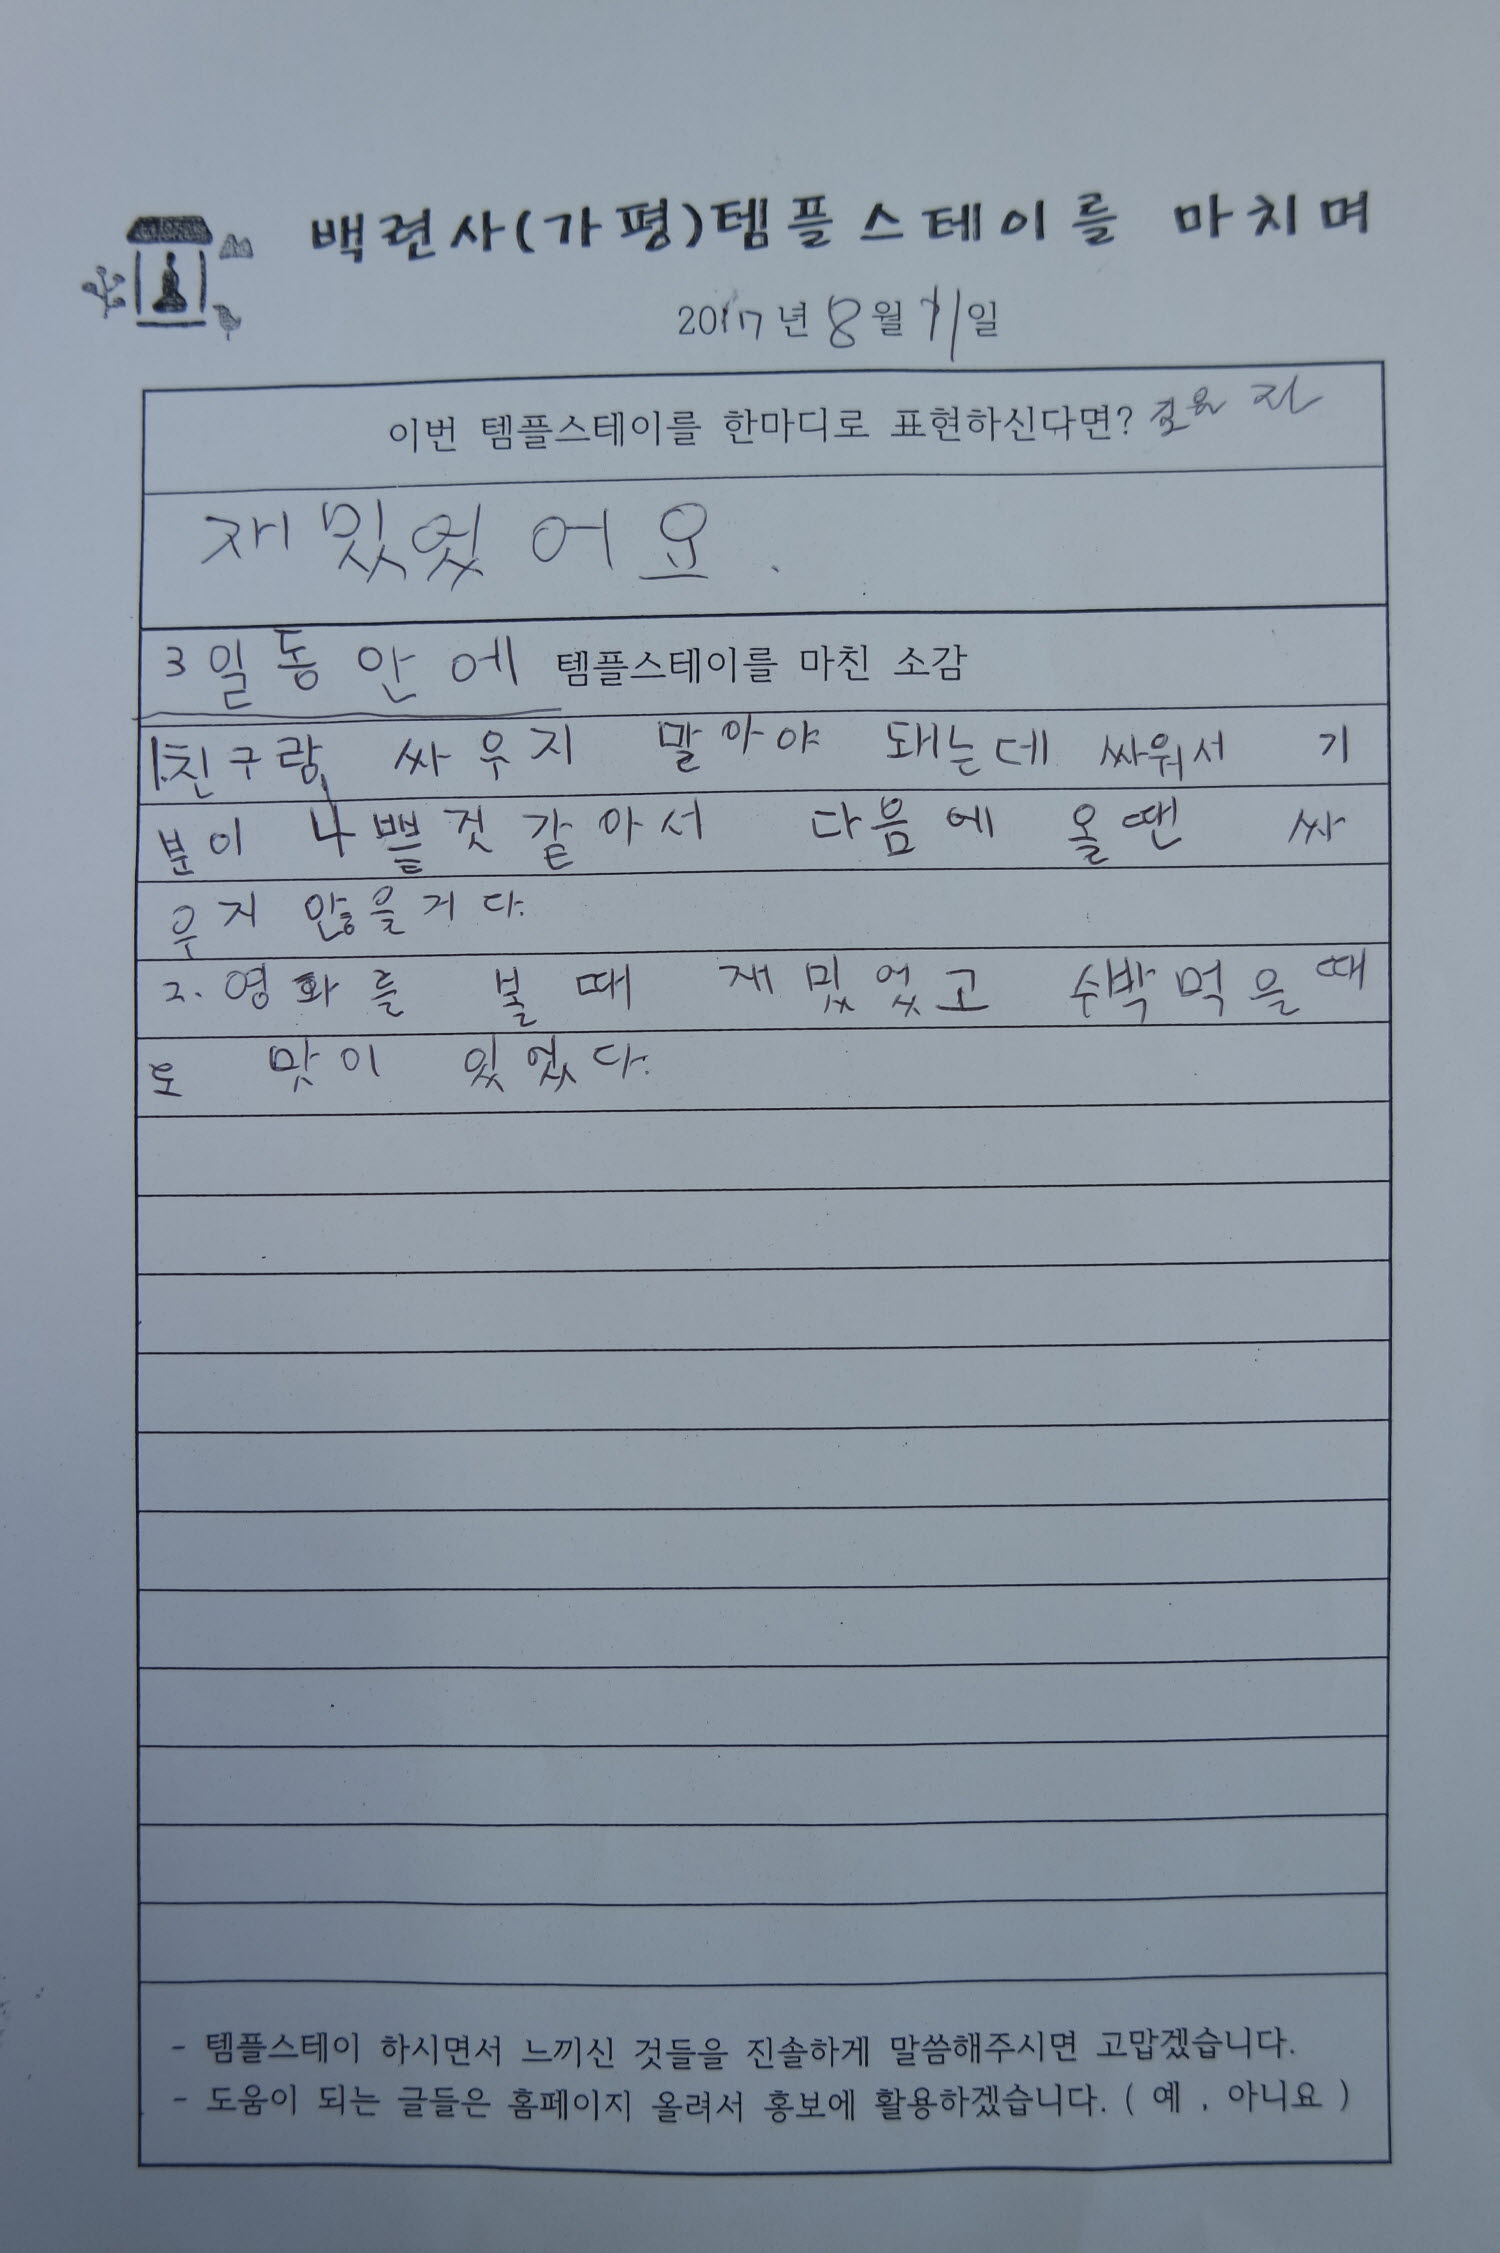 백련사(가평)템플스테이를 마치며
2017년 8월 11일
이번 템플스테이를 한마디로 표현하신다면?
재밌었어요.
3일동안에 템플스테이를 마친 소감
1.친구랑 싸우지 말아야 돼는데 싸워서 기
분이 나쁠것 같아서 다음에 올땐 싸
우지 않을거다.
2. 영화를 볼때 재밌었고 수박먹을때
도 맛이 있었다.
- 템플스테이 하시면서 느끼신 것들을 진솔하게 말씀해주시면 고맙겠습니다.
- 도움이 되는 글들은 홈페이지 올려서 홍보에 활용하겠습니다. ( 예 , 아니요 )